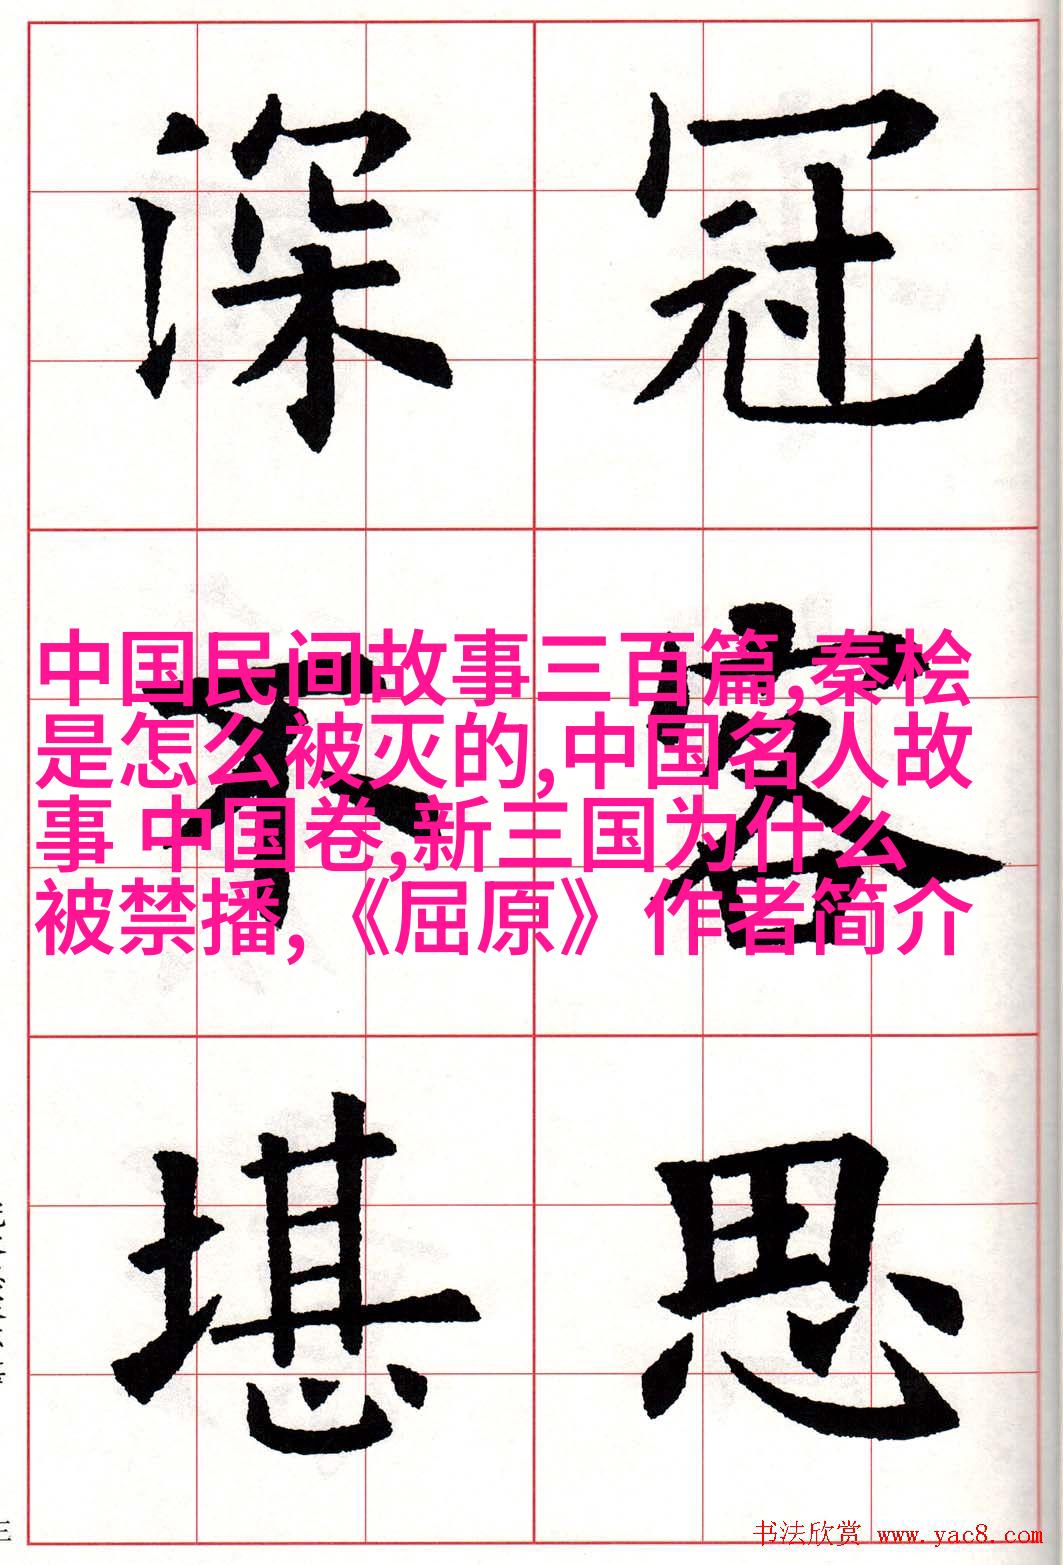 深冠
不容
堪思
中国民间故事三百篇,秦桧
是怎么被灭的,中国名人故
事 中国卷,新三国为什么
被禁播,《屈原》作者简介
三
书法欣赏 www.yac8.com